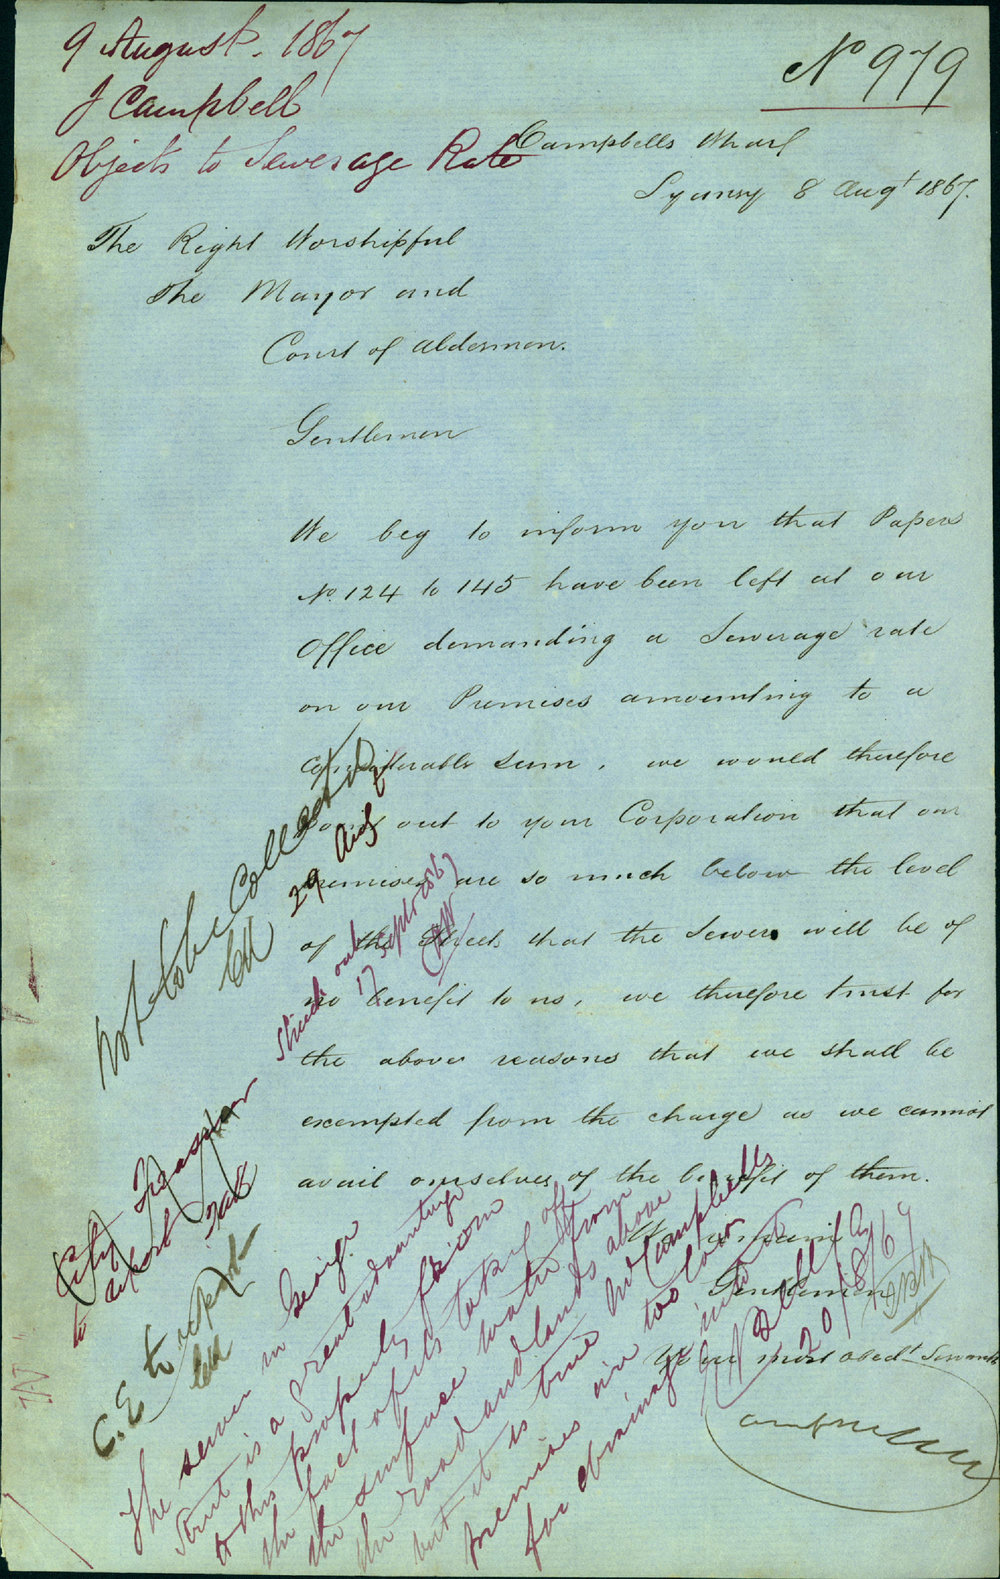 9 August. 1867
J Campbell
Objects to Sewerage Rate
No 979
Campbells Wharf
Sydney 8 Augt 1867.
The Right Worshipful
The Mayor and
Court of Aldermen.
Gentlemen
We beg to inform you that Papers
No. 124 to 145 have been left at our
Office demanding a Sewerage rate
on our Premises amounting to a
considerable sum, we would therefore
point out to your Corporation that our
premises are so much below the level
of the Street that the Sewers will be of
no benefit to us, we therefore trust for
the above reasons that we shall be
exempted from the charge as we cannot
avail ourselves of the benefit of them.
We remain
Gentlemen
Your most obedt Servants
Not to be Collected
29 Aug
Struck out
17 Septr 1867
City Treasurer
to report
rate
C.E to report
The sewer in George
Street is a great advantage
to this property from
the fact of its taking off
the surface water from
the road and lands above
but it is true Mr Campbells
premises are too low
for draining into it
E Bell CE
20/8/67